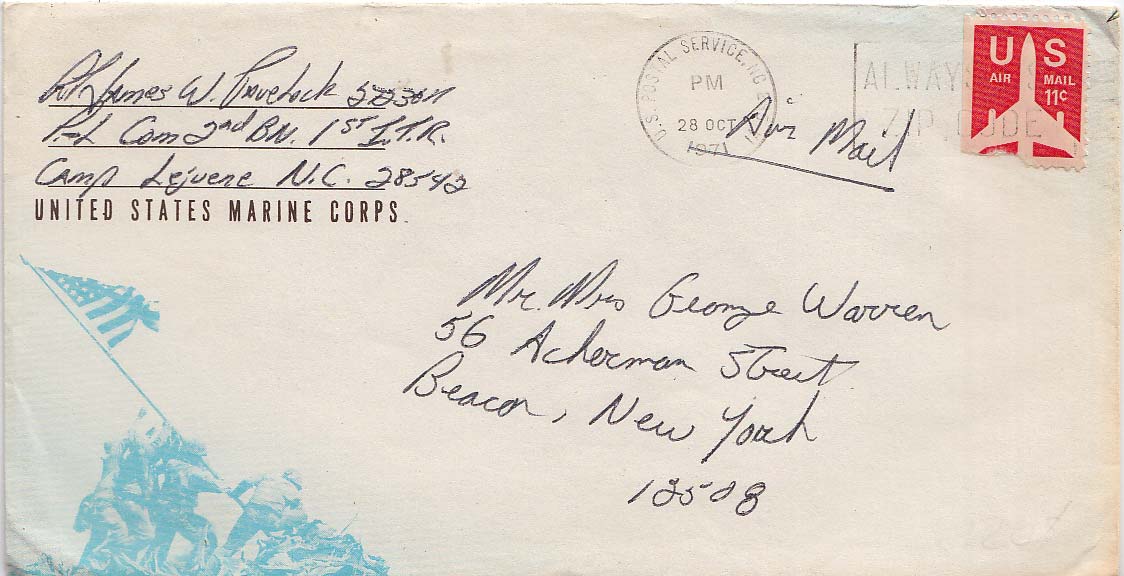 James W.
Com 2nd BN. 1st I.T.R.
Camp Lejuene N.C. 28542
UNITED STATES MARINE CORPS
U.S. POSTAL SERVICE, NC
PM
28 OCT
1971
ALWAYS
ZIP CODE
Air Mail
US
AIR MAIL
11¢
Mr. Mrs George Warren
56 Ackerman Street
Beacon, New York
12508